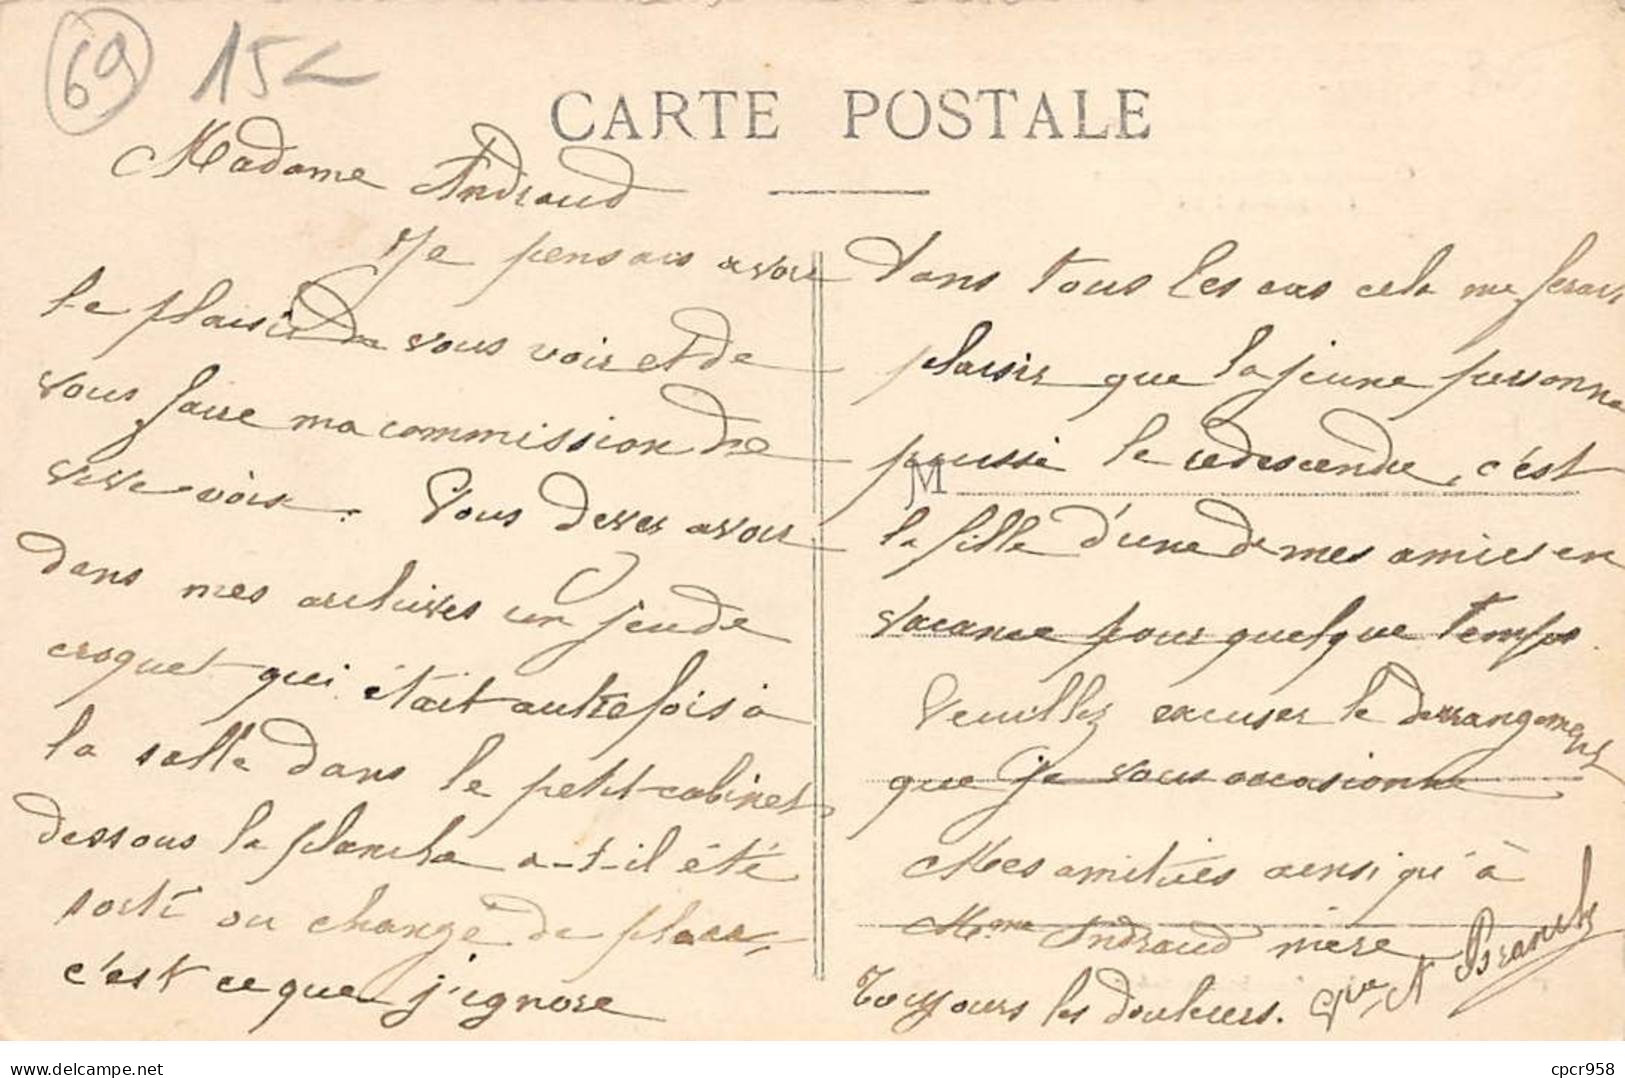 69 15
CARTE POSTALE
Madame Andraud
Je pensais avoir
le plaisir de vous voir et de
vous faire ma commission de
vive voix. Vous devez avoir
dans mes archives un jeu de
croquet qui était autrefois à
la salle dans le petit cabinet
dessous la planche a-t-il été
sorti ou changé de place,
c'est ce que j'ignore
Dans tous les cas cela me ferait
plaisir que la jeune personne
puisse le redescendre, c'est
M
la fille d'une de mes amies en
vacance pour quelque temps.
Veuillez excuser le derrangement
que je vous occasionne
Mes amitiées ainsi qu'à
Mme Andraud mère
Toujours les douleurs. Vve A
delcampe.net
cpcr958